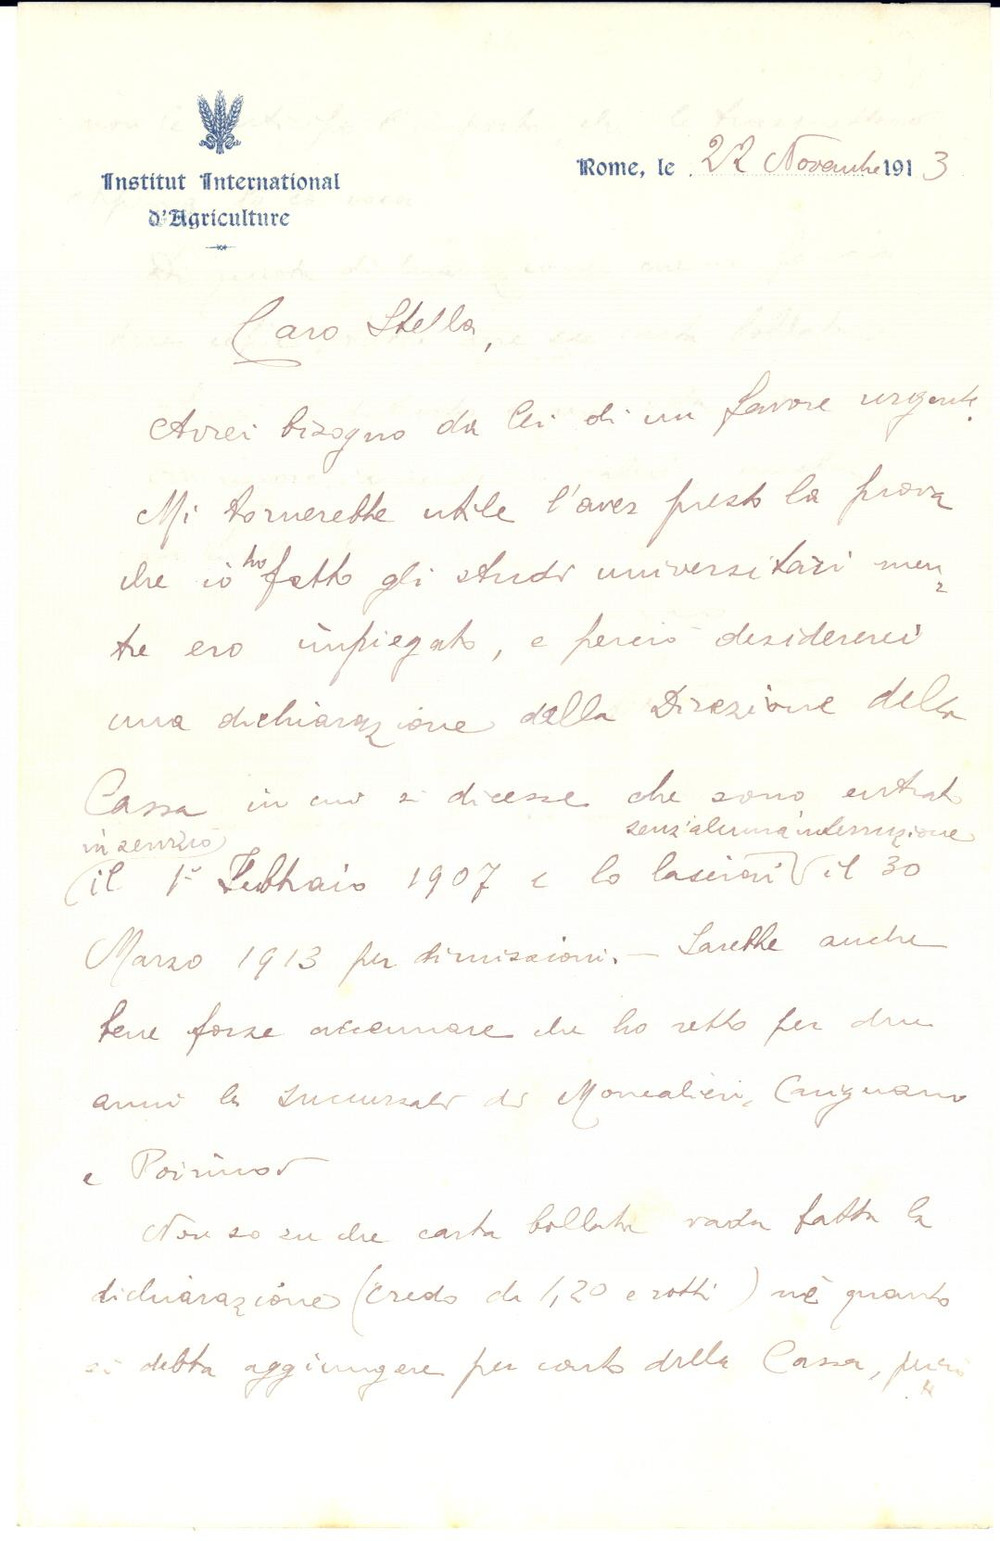 Institut International
d'Agriculture
Rome, le 22 Novembre 1913
Caro Stella,
Avrei bisogno da lei di un favore urgente.
Mi tornerebbe utile l'aver presto la prova
che io ho fatto gli studi universitari men
tre ero impiegato, e perciò desidererei
una dichiarazione dalla Direzione della
Cassa in cui si dicesse che sono entrato
in servizio senz'alcuna interruzione
il 1° Febbraio 1907 e lo lasciai il 30
Marzo 1913 per dimissioni. — Sarebbe anche
bene forse accennare che ho retto per due
anni le succursali di Moncalieri, Carignano
e Poirino
Non so su che carta bollata vada fatta la
dichiarazione (credo da 1,20 e rotti) nè quanto
si debba aggiungere per conto della Cassa, perciò